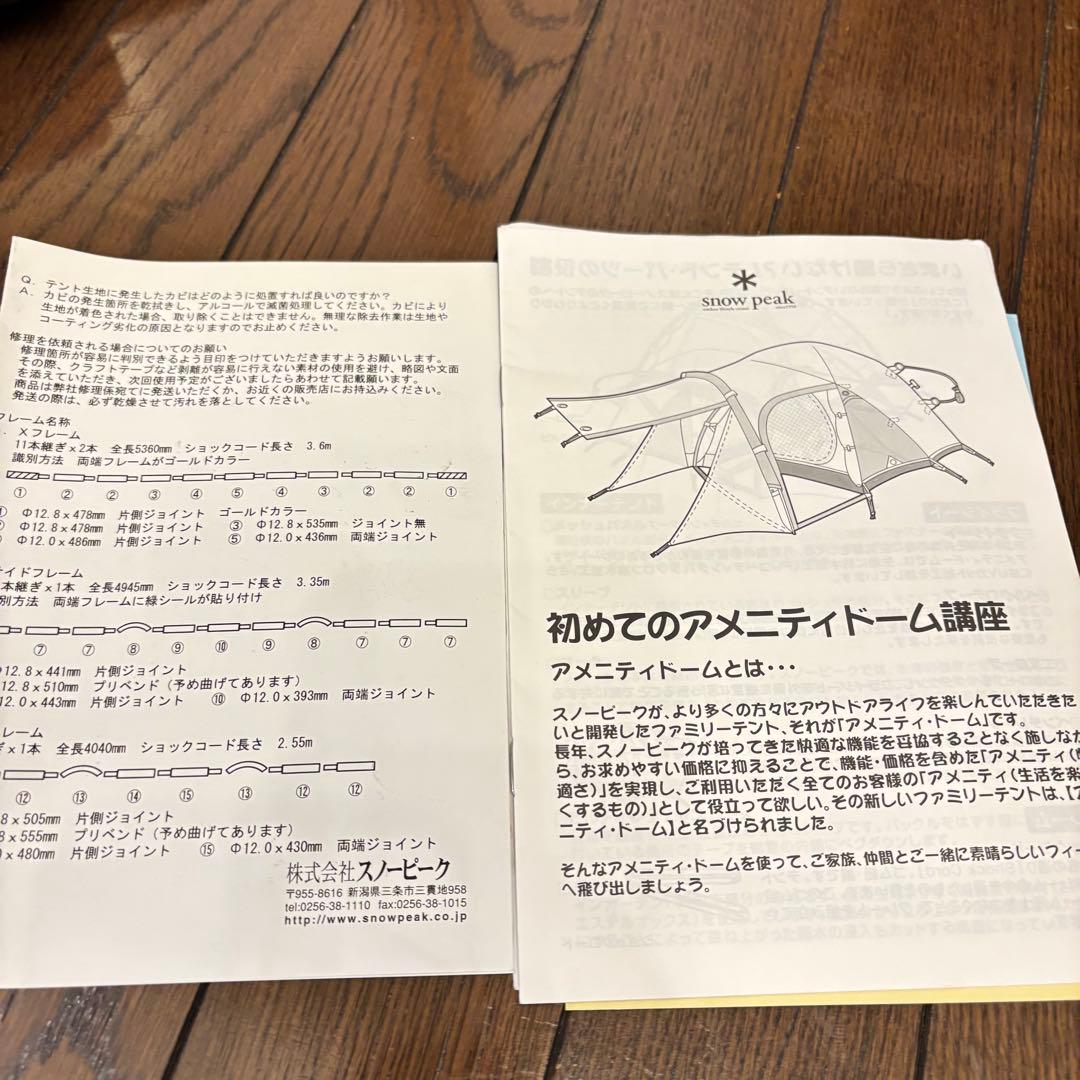 Q. テント生地に発生したカビはどのように処置すれば良いのですか?
A. カビの発生箇所を乾拭きし、アルコールで滅菌処理してください。カビにより
生地が着色された場合、取り除くことはできません。無理な除去作業は生地や
コーティング劣化の原因となりますのでお止めください。
修理を依頼される場合についてのお願い
修理箇所が容易に判別できるよう目印をつけていただきますようお願いします。
その際、クラフトテープなど剥離が容易に行えない素材の使用を避け、略図や文面
を添えていただき、次回使用予定がございましたらあわせて記載願います。
商品は弊社修理係宛てに発送いただくか、お近くの販売店にお持込みください。
発送の際は、必ず乾燥させて汚れを落としてください。
フレーム名称
. Xフレーム
11本継ぎx2本 全長5360mm ショックコード長さ 3.6m
識別方法 両端フレームがゴールドカラー
① ② ② ③ ④ ⑤ ④ ③ ② ② ①
① Φ12.8x478mm 片側ジョイント ゴールドカラー
② Φ12.8x478mm 片側ジョイント ③ Φ12.8x535mm ジョイント無
Φ12.0x486mm 片側ジョイント ⑤ Φ12.0x436mm 両端ジョイント
イドフレーム
本継ぎx1本 全長4945mm ショックコード長さ 3.35m
別方法 両端フレームに緑シールが貼り付け
⑦ ⑦ ⑧ ⑨ ⑩ ⑨ ⑧ ⑦ ⑦ ⑦
Φ12.8x441mm 片側ジョイント
12.8x510mm プリベンド(予め曲げてあります)
12.0x443mm 片側ジョイント ⑩ Φ12.0x393mm 両端ジョイント
レーム
ぎx1本 全長4040mm ショックコード長さ 2.55m
⑫ ⑬ ⑭ ⑮ ⑬ ⑫ ⑫
8x505mm 片側ジョイント
8x555mm プリベンド(予め曲げてあります)
0x480mm 片側ジョイント ⑮ Φ12.0x430mm 両端ジョイント
株式会社スノーピーク
〒955-8616 新潟県三条市三貫地958
tel:0256-38-1110 fax:0256-38-1015
http://www.snowpeak.co.jp
snow peak
初めてのアメニティドーム講座
アメニティドームとは・・・
スノーピークが、より多くの方々にアウトドアライフを楽しんでいただきた
いと開発したファミリーテント、それが「アメニティ・ドーム」です。
長年、スノーピークが培ってきた快適な機能を妥協することなく施しなが
ら、お求めやすい価格に抑えることで、機能・価格を含めた「アメニティ(
適さ)」を実現し、ご利用いただく全てのお客様の「アメニティ(生活を楽
くするもの)」として役立って欲しい。その新しいファミリーテントは、【ア
ニティ・ドーム】と名づけられました。
そんなアメニティ・ドームを使って、ご家族、仲間とご一緒に素晴らしいフィー
へ飛び出しましょう。